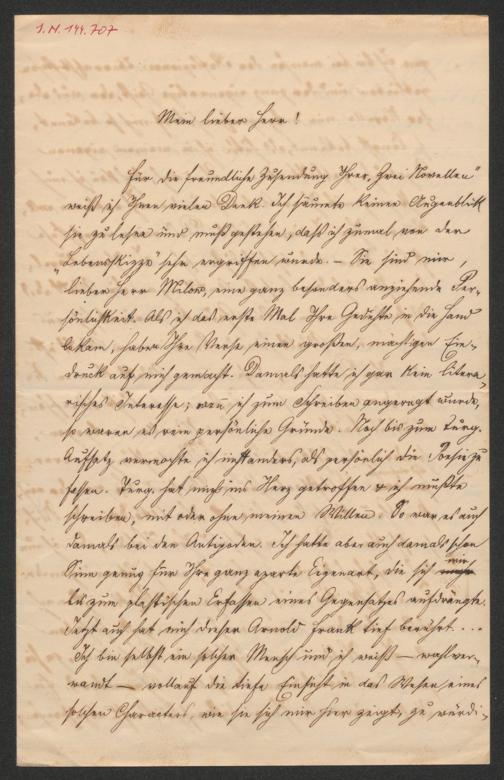 I.N. 144.707
Mein lieber Herr!
Für die freundliche Zusendung Ihrer „Zwei Novellen"
weiß ich Ihnen vielen Dank. Ich säumte keinen Augenblick
sie zu lesen und muß gestehen, daß ich zumal von der
„Lebensskizze" sehr ergriffen wurde. – Sie sind mir,
lieber Herr Milow, eine ganz besonders anziehende Per-
sönlichkeit. Als ich das erste Mal Ihre Gedichte in die Hand
bekam, haben Ihre Verse einen großen, mächtigen Ein-
druck auf mich gemacht. Damals hatte ich gar kein litera-
risches Interesse; wenn ich zum Schreiben angeregt wurde,
so waren es rein persönliche Gründe. Noch bis zum Turg.
Aufsatz vermochte ich nicht anders, als persönlich die Poesie zu
fassen. Turg. hat mich ins Herz getroffen & ich mußte
schreiben, mit oder ohne meinen Willen. So war es auch
damals bei den Antipoden. Ich hatte aber auch damals schon
Sinn genug für Ihre ganz aparte Eigenart, die sich mir
bis zum plastischen Erfassen eines Gegensatzes aufdrängte.
Jetzt auch hat mich dieser Arnold Frank tief berührt...
Ich bin selbst ein solcher Mensch und ich weiß – wahlver-
wandt – vollauf die tiefe Einsicht in das Wesen eines
solchen Characters, wie sie sich mir hier zeigt, zu würdi-